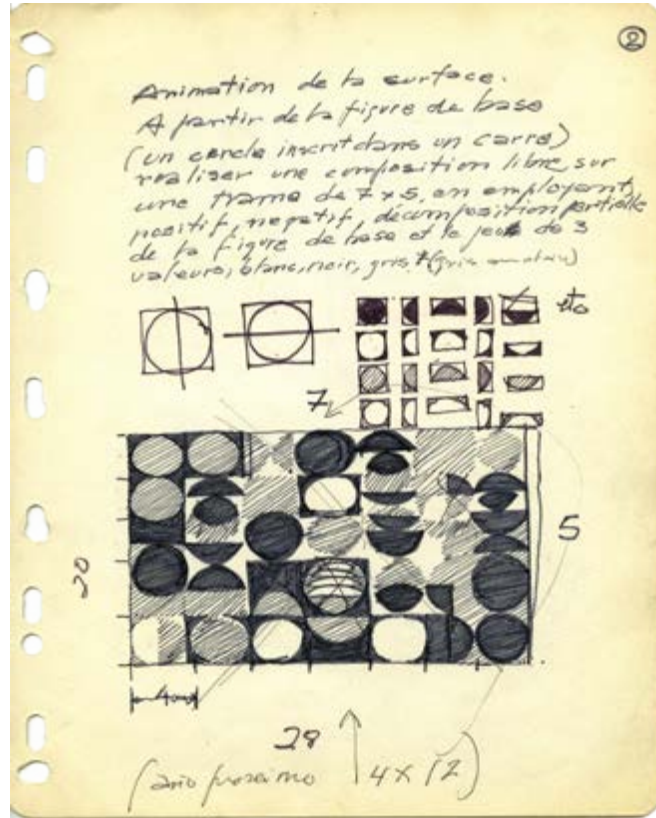 ②
Animation de la surface.
A partir de la figure de base
(un cercle inscrit dans un carré)
realiser une composition libre sur
une trame de 7 x 5, en employant,
positif, negatif, décomposition partielle
de la figure de base et le jeu de 3
valeurs, blanc, noir, gris
etc
7
5
20
4
28
(año proximo 4 x 12)